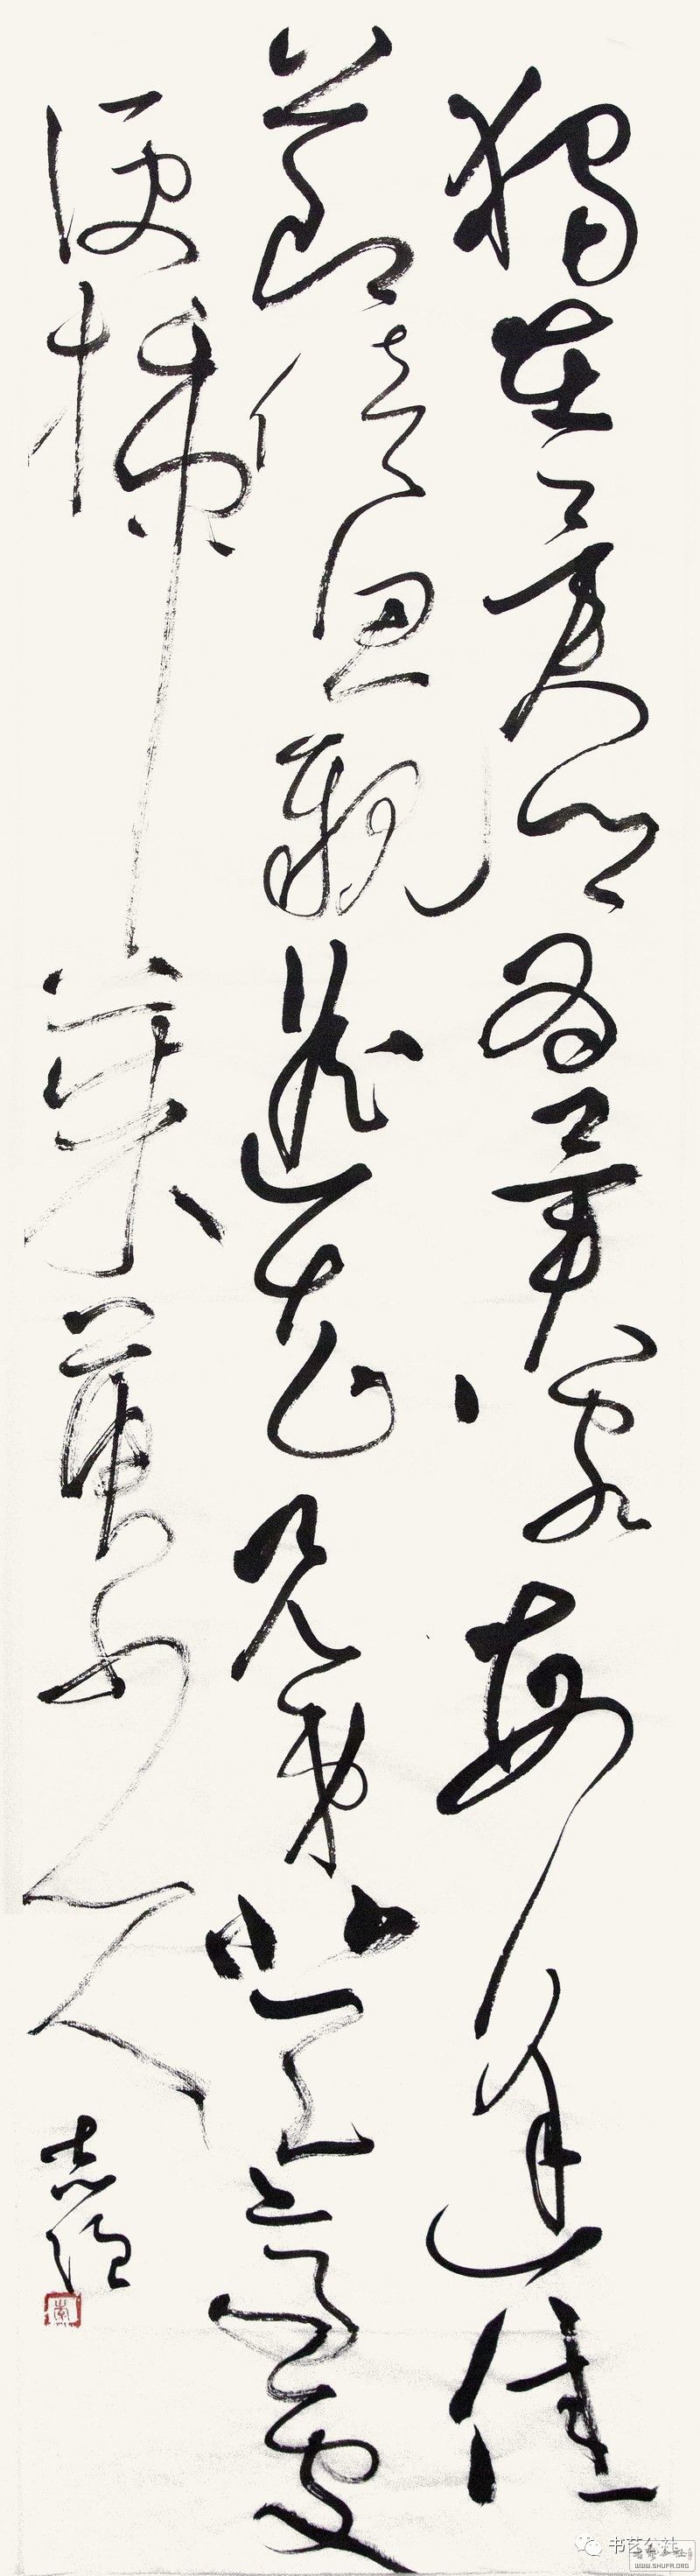 獨在異鄉為異客每逢佳
節倍思親遙知兄弟登高處
便插茱萸少一人
志
书艺公社
WWW.SHUFA.ORG